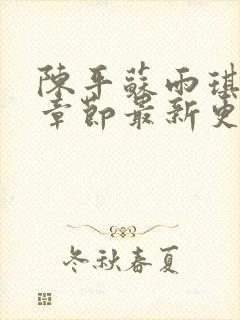 陳平蘇雨琪
章節最新更
冬秋春夏